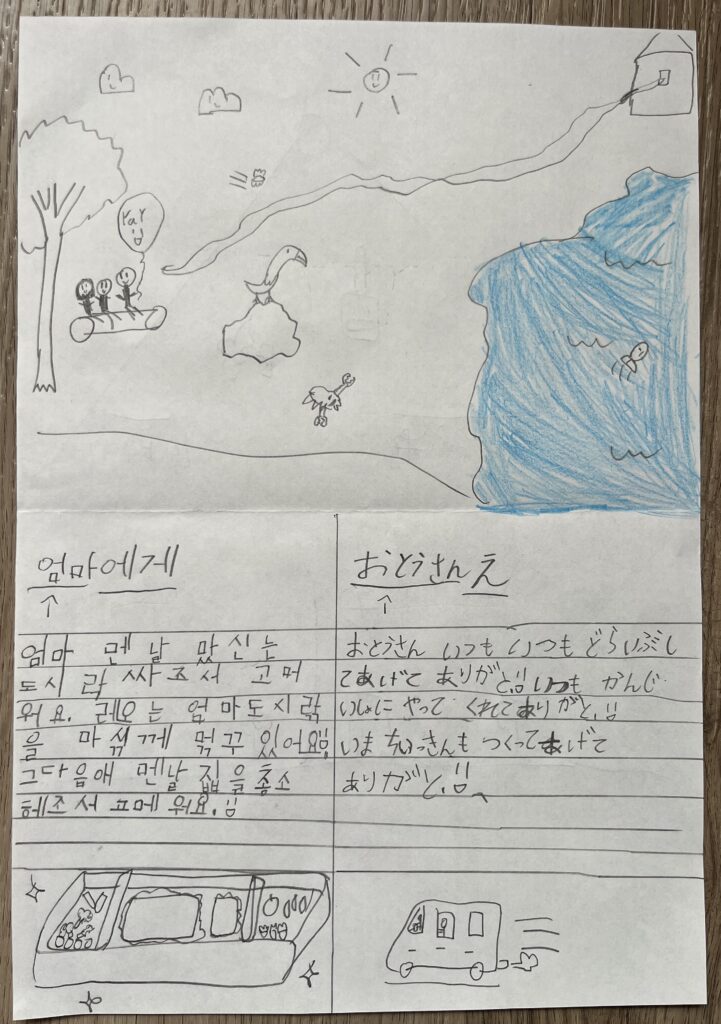 yay
엄마에게
엄마 멘날 맜신는
도시락 싸즈서 고머
워요. 레오는 엄마도시락
을 마싞께 먺꾸 있어요!!
그다음애 멘날 집을 총소
헤즈서 고메워요.
おとうさんえ
おとうさん いつも いつも どらいぶし
てあげて ありがと!! いつも かんじ
いしょに やって くれてありがと!!
いま ちいっきんも つくってあげて
ありがと!!